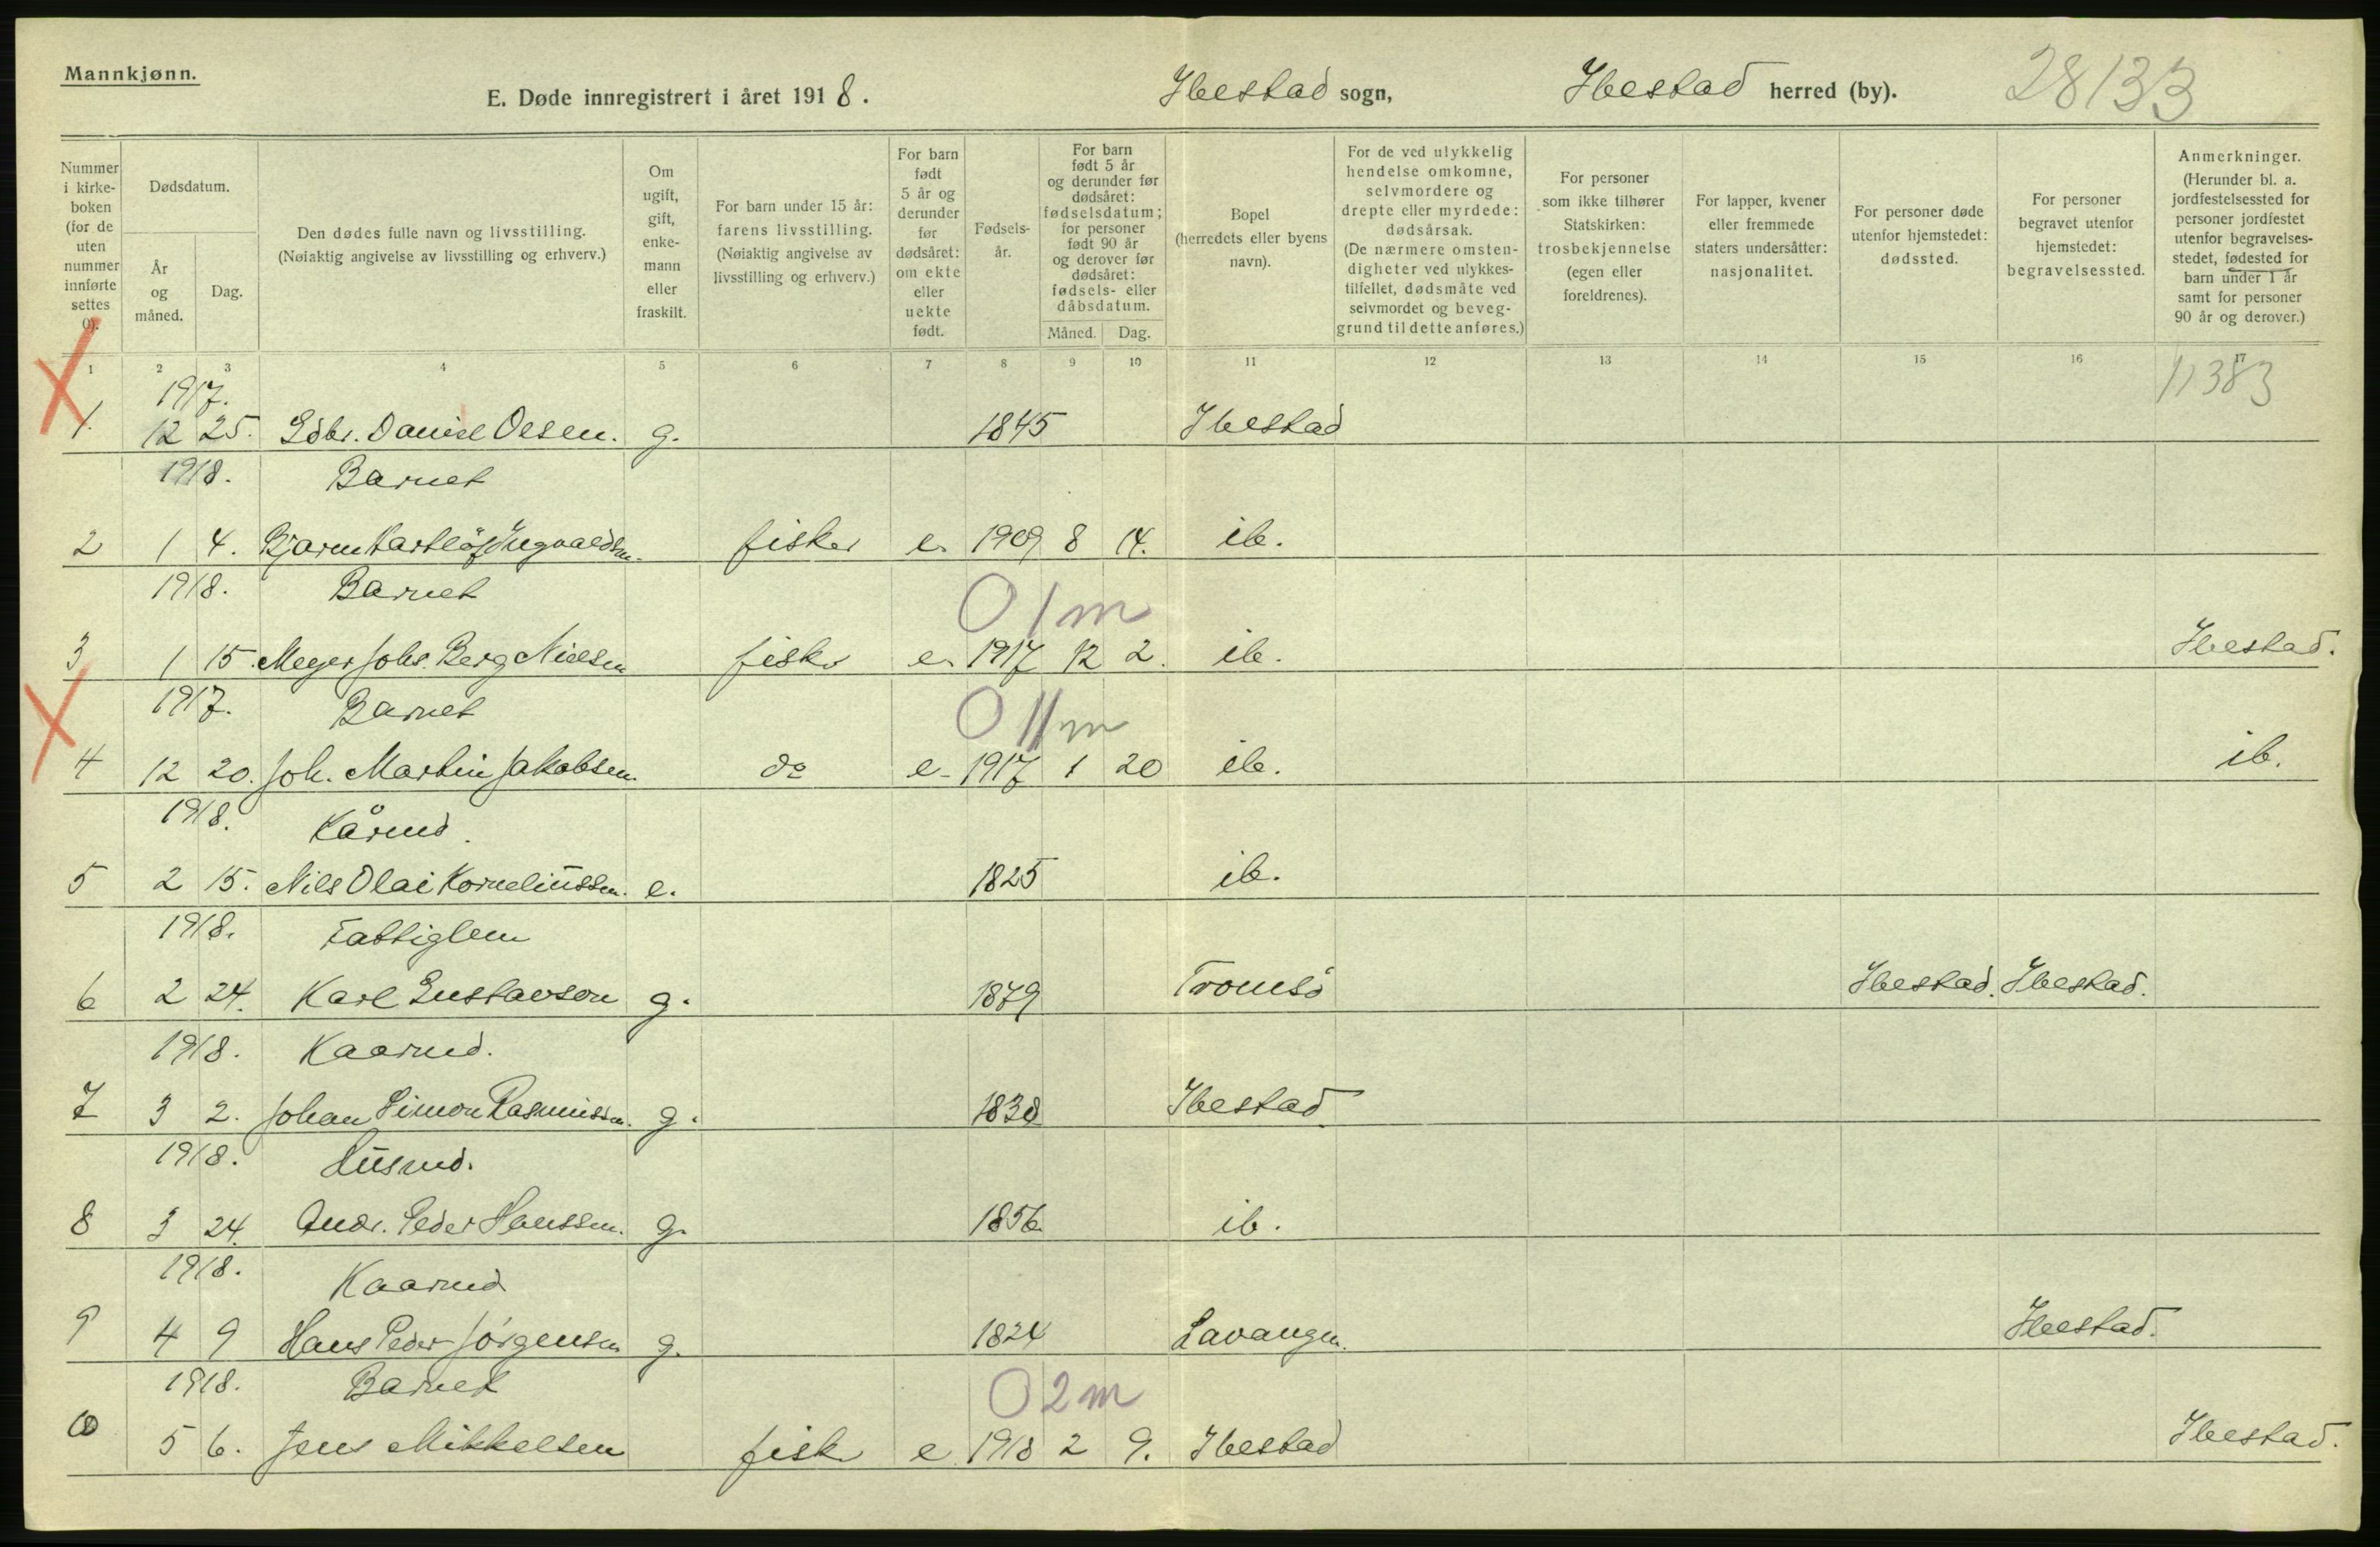 Mannkjønn.
E. Døde innregistrert i året 1918. Ibestad sogn, Ibestad herred (by). 28133
Nummer i kirkeboken (for de uten nummer innførte settes 0).
Dødsdatum.
År og måned.
Dag.
Den dødes fulle navn og livsstilling.
(Nøiaktig angivelse av livsstilling og erhverv.)
Om ugift, gift, enkemann eller fraskilt.
For barn under 15 år: farens livsstilling.
(Nøiaktig angivelse av livsstilling og erhverv.)
For barn født 5 år og derunder før dødsåret: om ekte eller uekte født.
Fødselsår.
For barn født 5 år og derunder før dødsåret: fødselsdatum; for personer født 90 år og derover før dødsåret: fødsels- eller dåbsdatum.
Måned. Dag.
Bopel (herredets eller byens navn).
For de ved ulykkelig hendelse omkomne, selvmordere og drepte eller myrdede: dødsårsak.
(De nærmere omstendigheter ved ulykkestilfellet, dødsmåte ved selvmordet og beveggrund til dette anføres.)
For personer som ikke tilhører Statskirken: trosbekjennelse (egen eller foreldrenes).
For lapper, kvener eller fremmede staters undersåtter: nasjonalitet.
For personer døde utenfor hjemstedet: dødssted.
For personer begravet utenfor hjemstedet: begravelsessted.
Anmerkninger.
(Herunder bl. a. jordfestelsessted for personer jordfestet utenfor begravelsesstedet, fødested for barn under 1 år samt for personer 90 år og derover.)
1 2 3 4 5 6 7 8 9 10 11 12 13 14 15 16 17
1917. 11383
1. 12 25. Gdbr. Daniel Olsen. g. 1845 Ibestad
1918. Barnet
2 1 4. Bjarne Hartløf Ingvaldsen. fisker e. 1909 8 14. ib.
1918. Barnet 0 1 m
3 1 15. Meyer Johs. Berg Nielsen fisker e. 1917 12 2. ib. Ibestad.
1917. Barnet 0 11 m
4 12 20. Joh. Martin Jakobsen do e. 1917 1 20 ib. ib.
1918. Kårmd.
5 2 15. Nils Olai Korneliussen. e. 1825 ib.
1918. Fattiglem
6 2 24. Karl Gustavson g. 1879 Tromsö Ibestad. Ibestad.
1918. Kaarmd.
7 3 2. Johan Simon Rasmussen. g. 1838 Ibestad.
1918. Husmd.
8 3 24. Andr. Peder Hanssen. g. 1856 ib.
1918. Kaarmd
9 4 9 Hans Peder Jörgensen g. 1824 Lavangen. Ibestad.
1918. Barnet 0 2 m
10 5 6. Jens Mikkelsen fisker e 1918 2 9. Ibestad Ibestad.